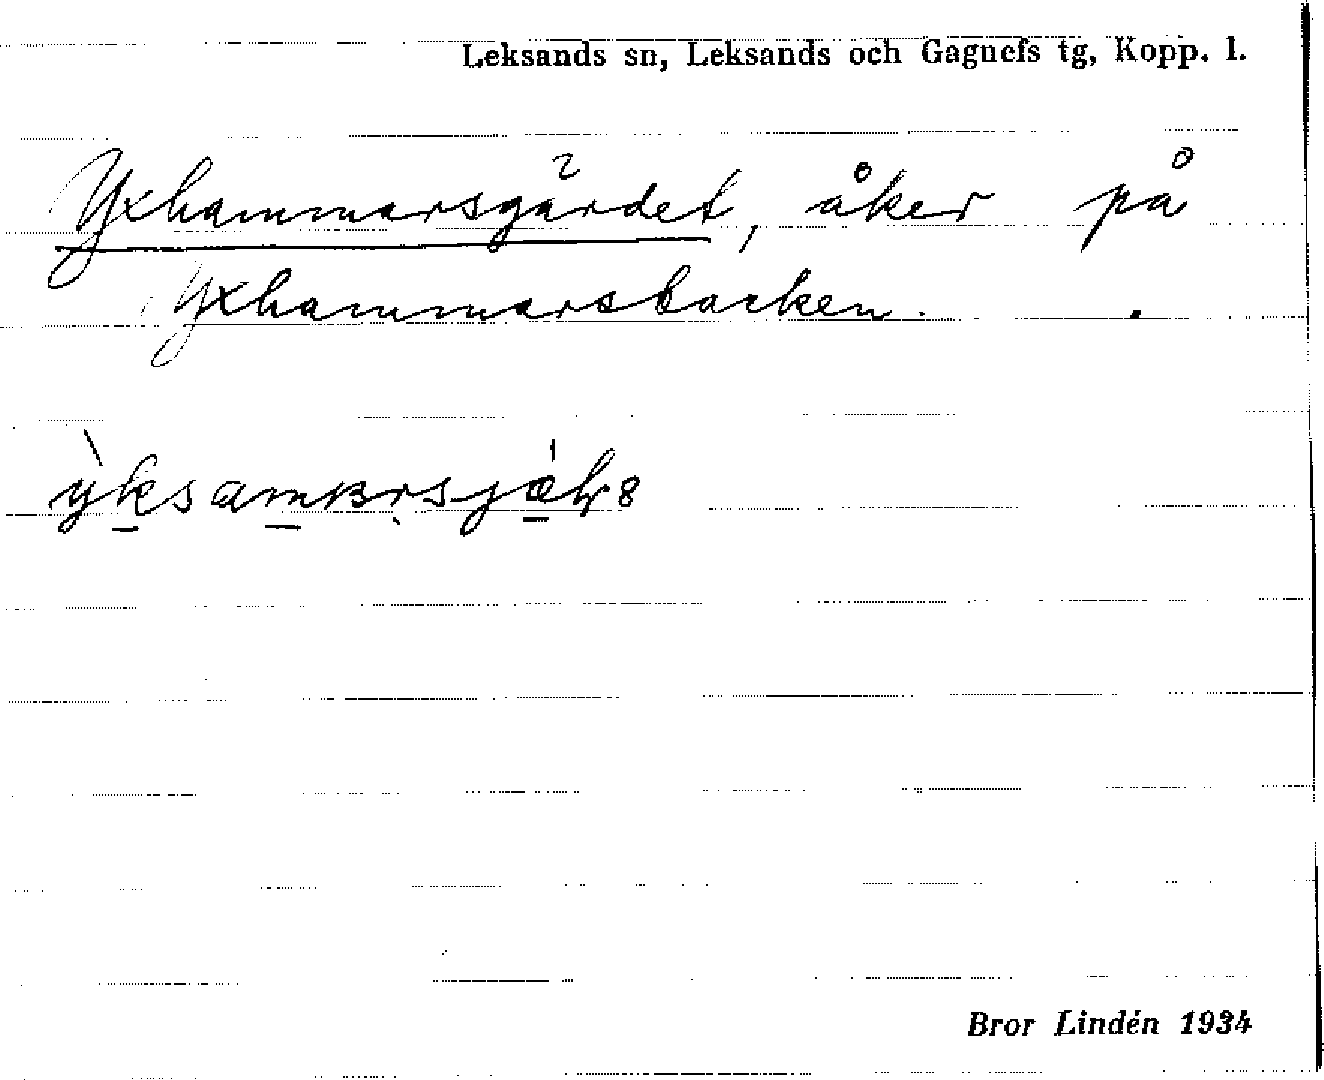 Leksands sn, Leksands och Gagnefs tg, Kopp. l.
Yxhammarsgärdet, åker på
Yxhammarsbacken.
Bror Lindén 1934